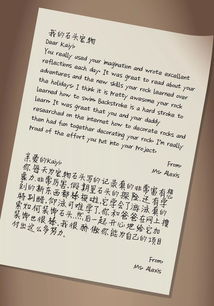 我的石头宠物
Dear Kay's
You really used your imagination and wrote excellent
reflections each day. It was great to read about your
adventures and the new skills your rock learned over
the holidays. I think it is pretty awesome your rock
learned how to swim. Backstroke is a hard stroke to
learn. It was great that you and your daddy
researched on the internet how to decorate rocks and
then had fun together decorating your rock. I'm really
proud of the effort you put into your project.
From
Ms Alexis
亲爱的Kay's
你每天为宠物石头写的记录真的非常富有想
象力,非常厉害,假期里石头的探险,还有学
到的新东西都棒极啦,它学会了游泳真的
特别棒,仰泳可难学了,你和爸爸在网上搜
索如何装饰石头,然后一起开心地给它加
装饰也很棒,我很骄傲你能为自己的项目
付出这么多努力。
From
Ms Alexis